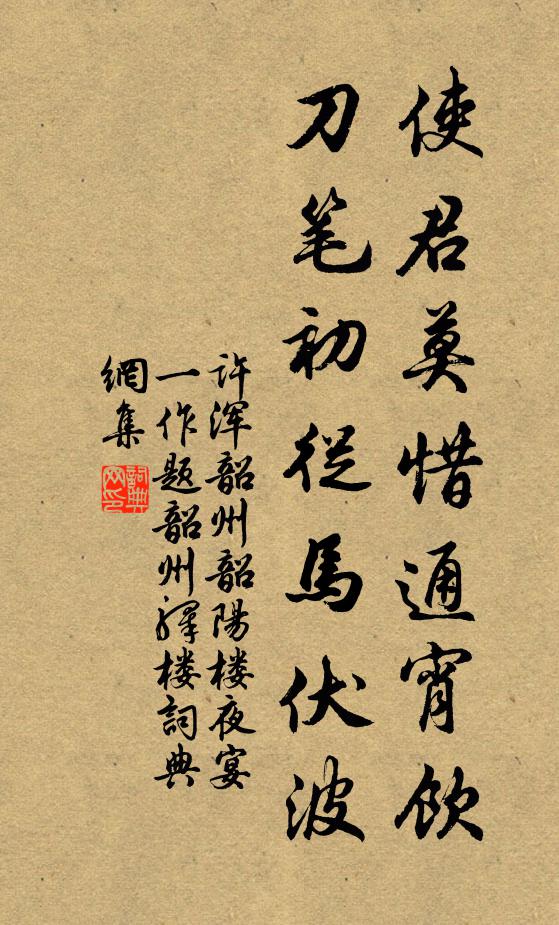 使君莫惜通宵飲
刀笔初從馬伏波
许浑韶州韶陽楼夜宴
一作题韶州驿楼詞典
網集
詞典
网印